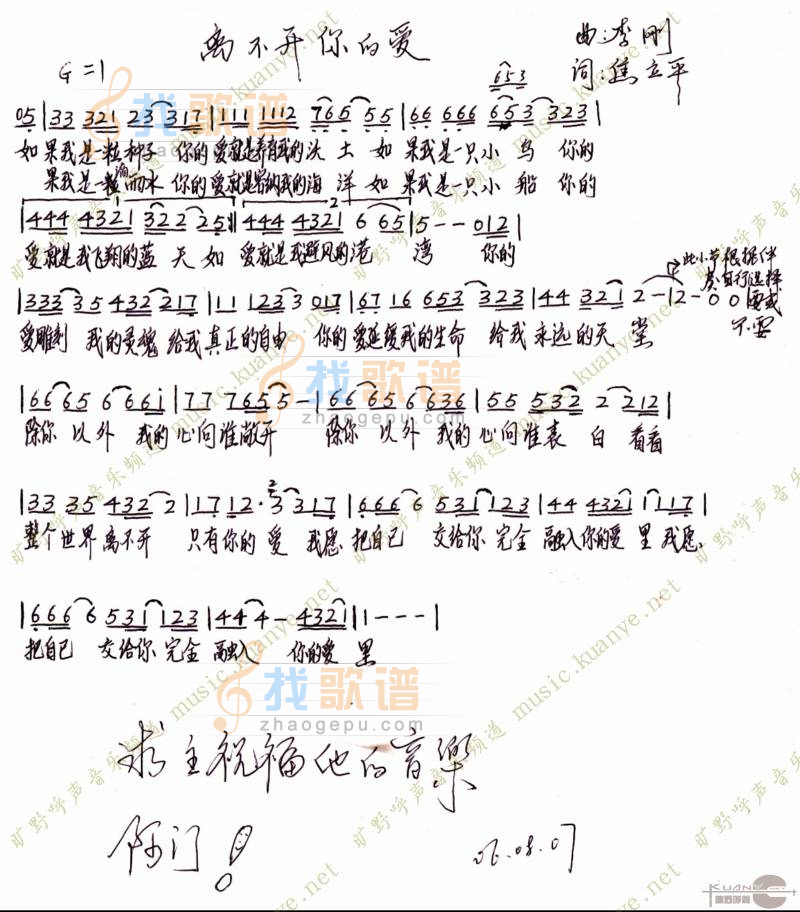 离不开你的爱
曲:李刚
G=1
6 5 3
词:焦立平
05|33 321 23 317|111 1112 765 55|66 666 653 323|
如果我是一粒种子 你的爱就是养育我的沃土 如果我是一只小鸟 你的
果我是一滴雨水 你的爱就是容纳我的海洋 如果我是一只小船 你的
|444 4321 322 225:||444 4321 6 65|5--012|
爱就是我飞翔的蓝天 如 爱就是我避风的港 湾 你的
此小节根据伴
奏自行选择
要或
不要
|333 35 432 217|11 123 3 017|67 16 653 323|44 321 2-|2-00|
爱雕刻 我的灵魂 给我真正的自由 你的爱延续我的生命 给我永远的天堂
|66 65 6 66i|77 765 5-|66 65 6 636|55 532 2 212|
除你以外 我的心向谁敞开 除你以外 我的心向谁表白 看看
|33 35 432 2|17 12·3 317|666 6 531 123|44 4321 1 117|
整个世界离不开 只有你的爱 我愿把自己 交给你 完全融入你的爱里 我愿
|666 6 531 123|444-4321||1---|
把自己 交给你 完全融入 你的爱里
求主祝福他的音樂
阿门!
06.08.07
找歌谱
zhaogepu.com
旷野呼声音乐频道 music.kuanye.net
KUANYE
旷野呼声